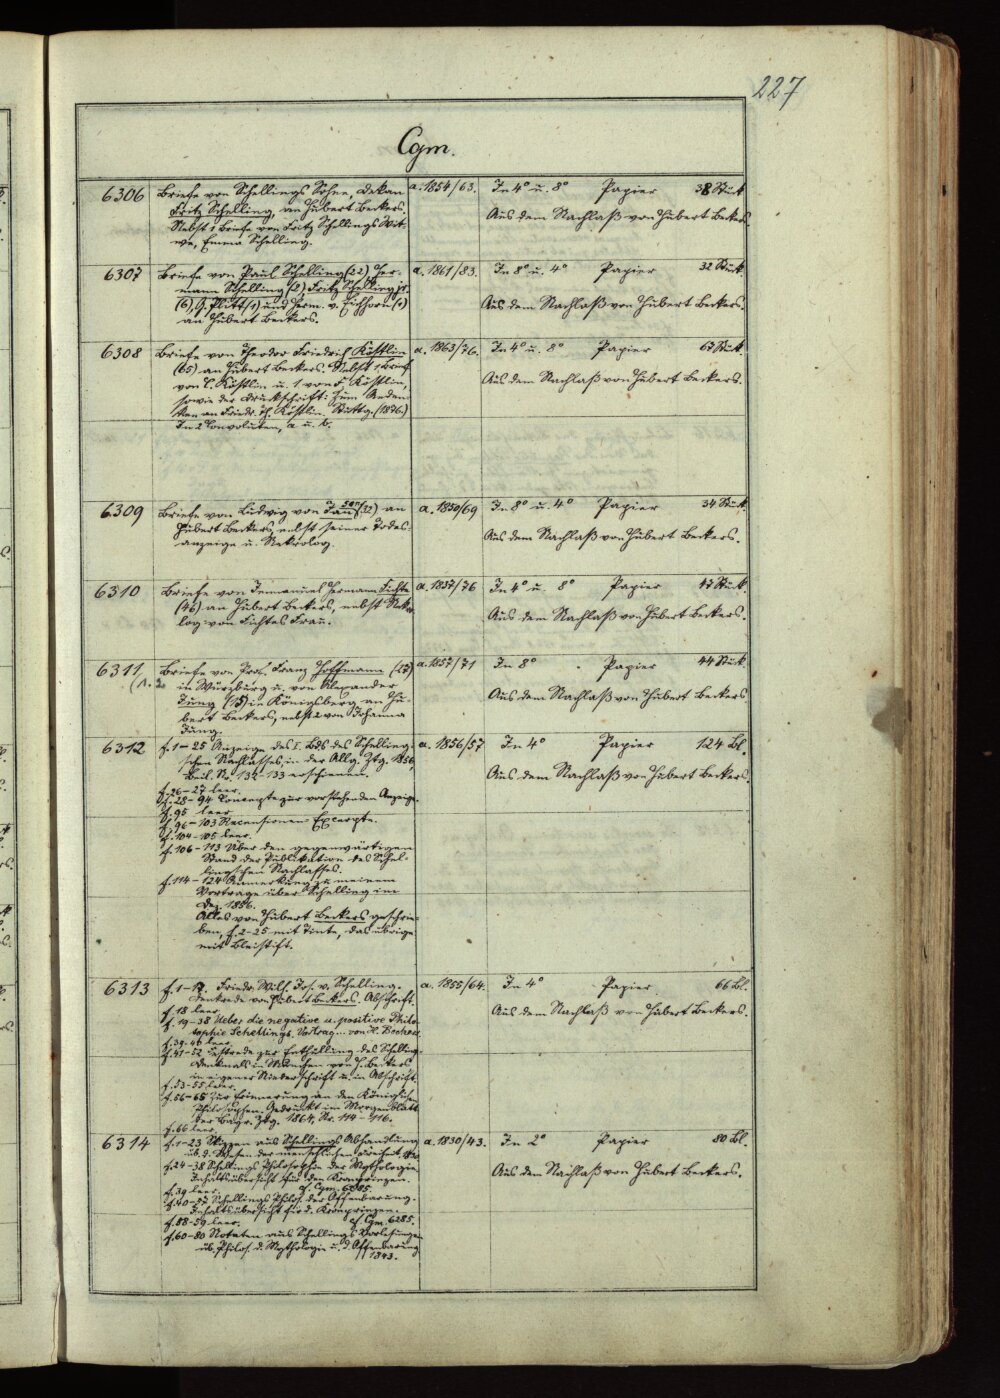 227
Cgm.
6306 Briefe von Schellings Sohne, Dekan a. 1854/63. In 4° u. 8° Papier 38 Stück
Fritz Schelling, an Hubert Beckers. Aus dem Nachlaß von Hubert Beckers.
Nebst 1 Briefe von Fritz Schellings Wit-
we, Emma Schelling.
6307 Briefe von Paul Schelling (22), Her- a. 1861/83. In 8° u. 4° Papier 32 Stück
mann Schelling (2), Fritz Schelling jr.
(6), G. Plitt (1) und Herm. v. Eichhorn (1) Aus dem Nachlaß von Hubert Beckers.
an Hubert Beckers.
6308 Briefe von Theodor Friedrich Köstlin a. 1863/76. In 4° u. 8° Papier 67 Stück
(65) an Hubert Beckers. Nebst 1 Brief Aus dem Nachlaß von Hubert Beckers.
von C. Köstlin u. 1 von F. Köstlin,
sowie der Druckschrift: Zum Anden-
ken an Friedr. Th. Köstlin. Stuttg. (1876.)
In 2 Convoluten, a u. b.
6309 Briefe von Ludwig von (32) an a. 1830/69 In 8° u. 4° Papier 34 Stück.
Hubert Beckers, nebst seiner Todes- Aus dem Nachlaß von Hubert Beckers.
anzeige u. Nekrolog.
6310 Briefe von Immanuel Hermann Fichte a. 1837/76 In 4° u. 8° Papier 47 Stück.
(46) an Hubert Beckers, nebst Nekro- Aus dem Nachlaß von Hubert Beckers.
log von Fichtes Frau.
6311 Briefe von Prof. Franz Hoffmann (27) a. 1857/71 In 8° Papier 44 Stück.
in Würzburg u. von Alexander
Jung (15) in Königsberg an Hu- Aus dem Nachlaß von Hubert Beckers
bert Beckers, nebst 2 von Johanna
Jung.
6312 f. 1–25 Anzeige des I. Bds des Schelling- a. 1856/57 In 4° Papier 124 Bl.
schen Nachlasses, in der Allg. Ztg. 1856,
Beil. N. 132–133 erschienen. Aus dem Nachlaß von Hubert Beckers.
f. 26–27 leer.
f. 28–94 Concepte zur vorstehenden Anzeige.
f. 95 leer
f. 96–103 Recensionen-Excerpte.
f. 104–105 leer.
f. 106–113 Über den gegenwärtigen
Stand der Publikation des Schel-
ling'schen Nachlasses.
f. 114–124 Anmerkung zu meinem
Vortrage über Schelling im
Dez. 1856.
Alles von Hubert Beckers geschrie-
ben, f. 2–25 mit Tinte, das übrige
mit Bleistift.
6313 f. 1–17. Friedr. Wilh. Jos. v. Schelling. a. 1855/64. In 4° Papier 66 Bl.
Denkrede von Hubert Beckers. Abschrift.
f. 18 leer. Aus dem Nachlaß von Hubert Beckers.
f. 19–38 Ueber die negative u. positive Philo-
sophie Schellings. Vortrag... von H. Beckers
f. 39–40 leer.
f. 41–52 Festrede zur Enthüllung des Schelling-
Denkmals in München von H. Beckers
in eigener Niederschrift u. in Abschrift.
f. 53–55 leer.
f. 56–65 Zur Erinnerung an den Königlichen
Philosophen. Gedruckt im Morgenblatt
der Bayr. Ztg. 1864, Nr. 114–116.
f. 66 leer.
6314 f. 1–23 Skizzen aus Schellings Abhandlung a. 1830/43. In 2° Papier 80 Bl.
üb. d. Wesen der menschlichen Freiheit
f. 24–38 Schellings Philosophie der Mythologie. Aus dem Nachlaß von Hubert Beckers.
Inhaltsübersicht für den Kronprinzen.
f. 39 leer. cf. Cgm. 6285.
f. 40–57 Schellings Philos. der Offenbarung.
Inhaltsübersicht für d. Kronprinzen.
f. 58–59 leer. cf. Cgm 6285.
f. 60–80 Notaten aus Schellings Vorlesungen
üb. Philos. d. Mythologie u. d. Offenbarung
1843.